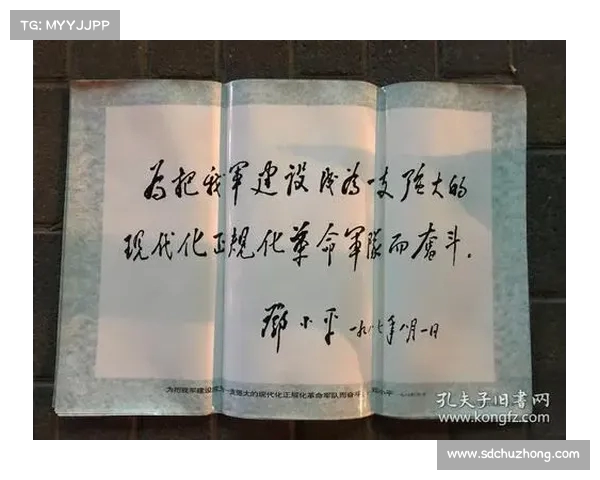 TG: MYYJJPP
为把我军建设成为一支强大的
现代化正规化革命军队而奋斗.
邓小平 一九八七年八月一日
为把我军建设成为一支强大的现代化正规化革命军队而奋斗
孔夫子旧书网
www.kongfz.com
www.sdchuzhong.com